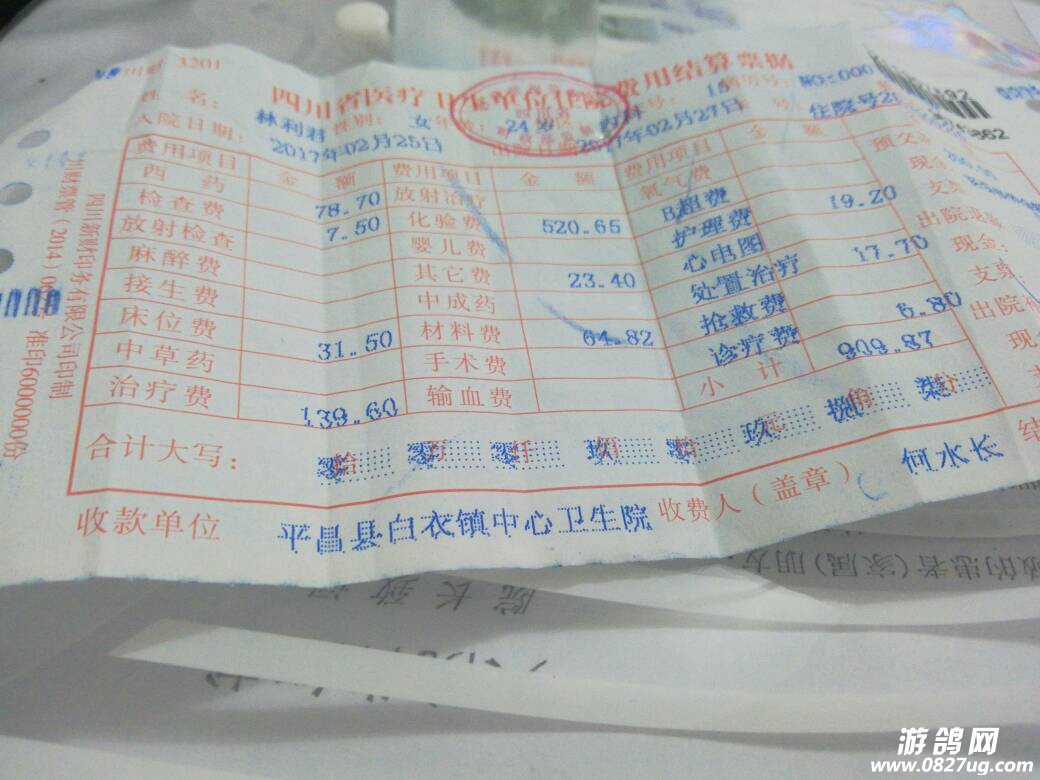 川财 3201
四川省医疗卫生单位住院费用结算票据
姓名: 林利君 性别: 女 年龄: 24岁 内科 号: 15 病历号: NO:000
入院日期: 2017年02月25日 出院日期: 2017年02月27日 住院号
费用项目 金额 费用项目 金额 费用项目 金额 预交
西药 78.70 放射治疗 氧气费 现金
检查费 7.50 化验费 520.65 B超费 19.20 支票
放射检查 婴儿费 护理费
麻醉费 其它费 23.40 心电图 17.70 现金:
接生费 中成药 处置治疗 支票:
床位费 31.50 材料费 64.82 抢救费 6.80
中草药 手术费 诊疗费
治疗费 139.60 输血费 小计 909.87
合计大写: 零拾 零万 零仟 玖佰 零拾 玖元 捌角 柒分
收款单位 平昌县白衣镇中心卫生院 收费人(盖章) 何水长
四川鼎财印务有限公司印制
准印6000000份
的患者(家属)朋友
院长致
游鸽网
www.0827ug.com